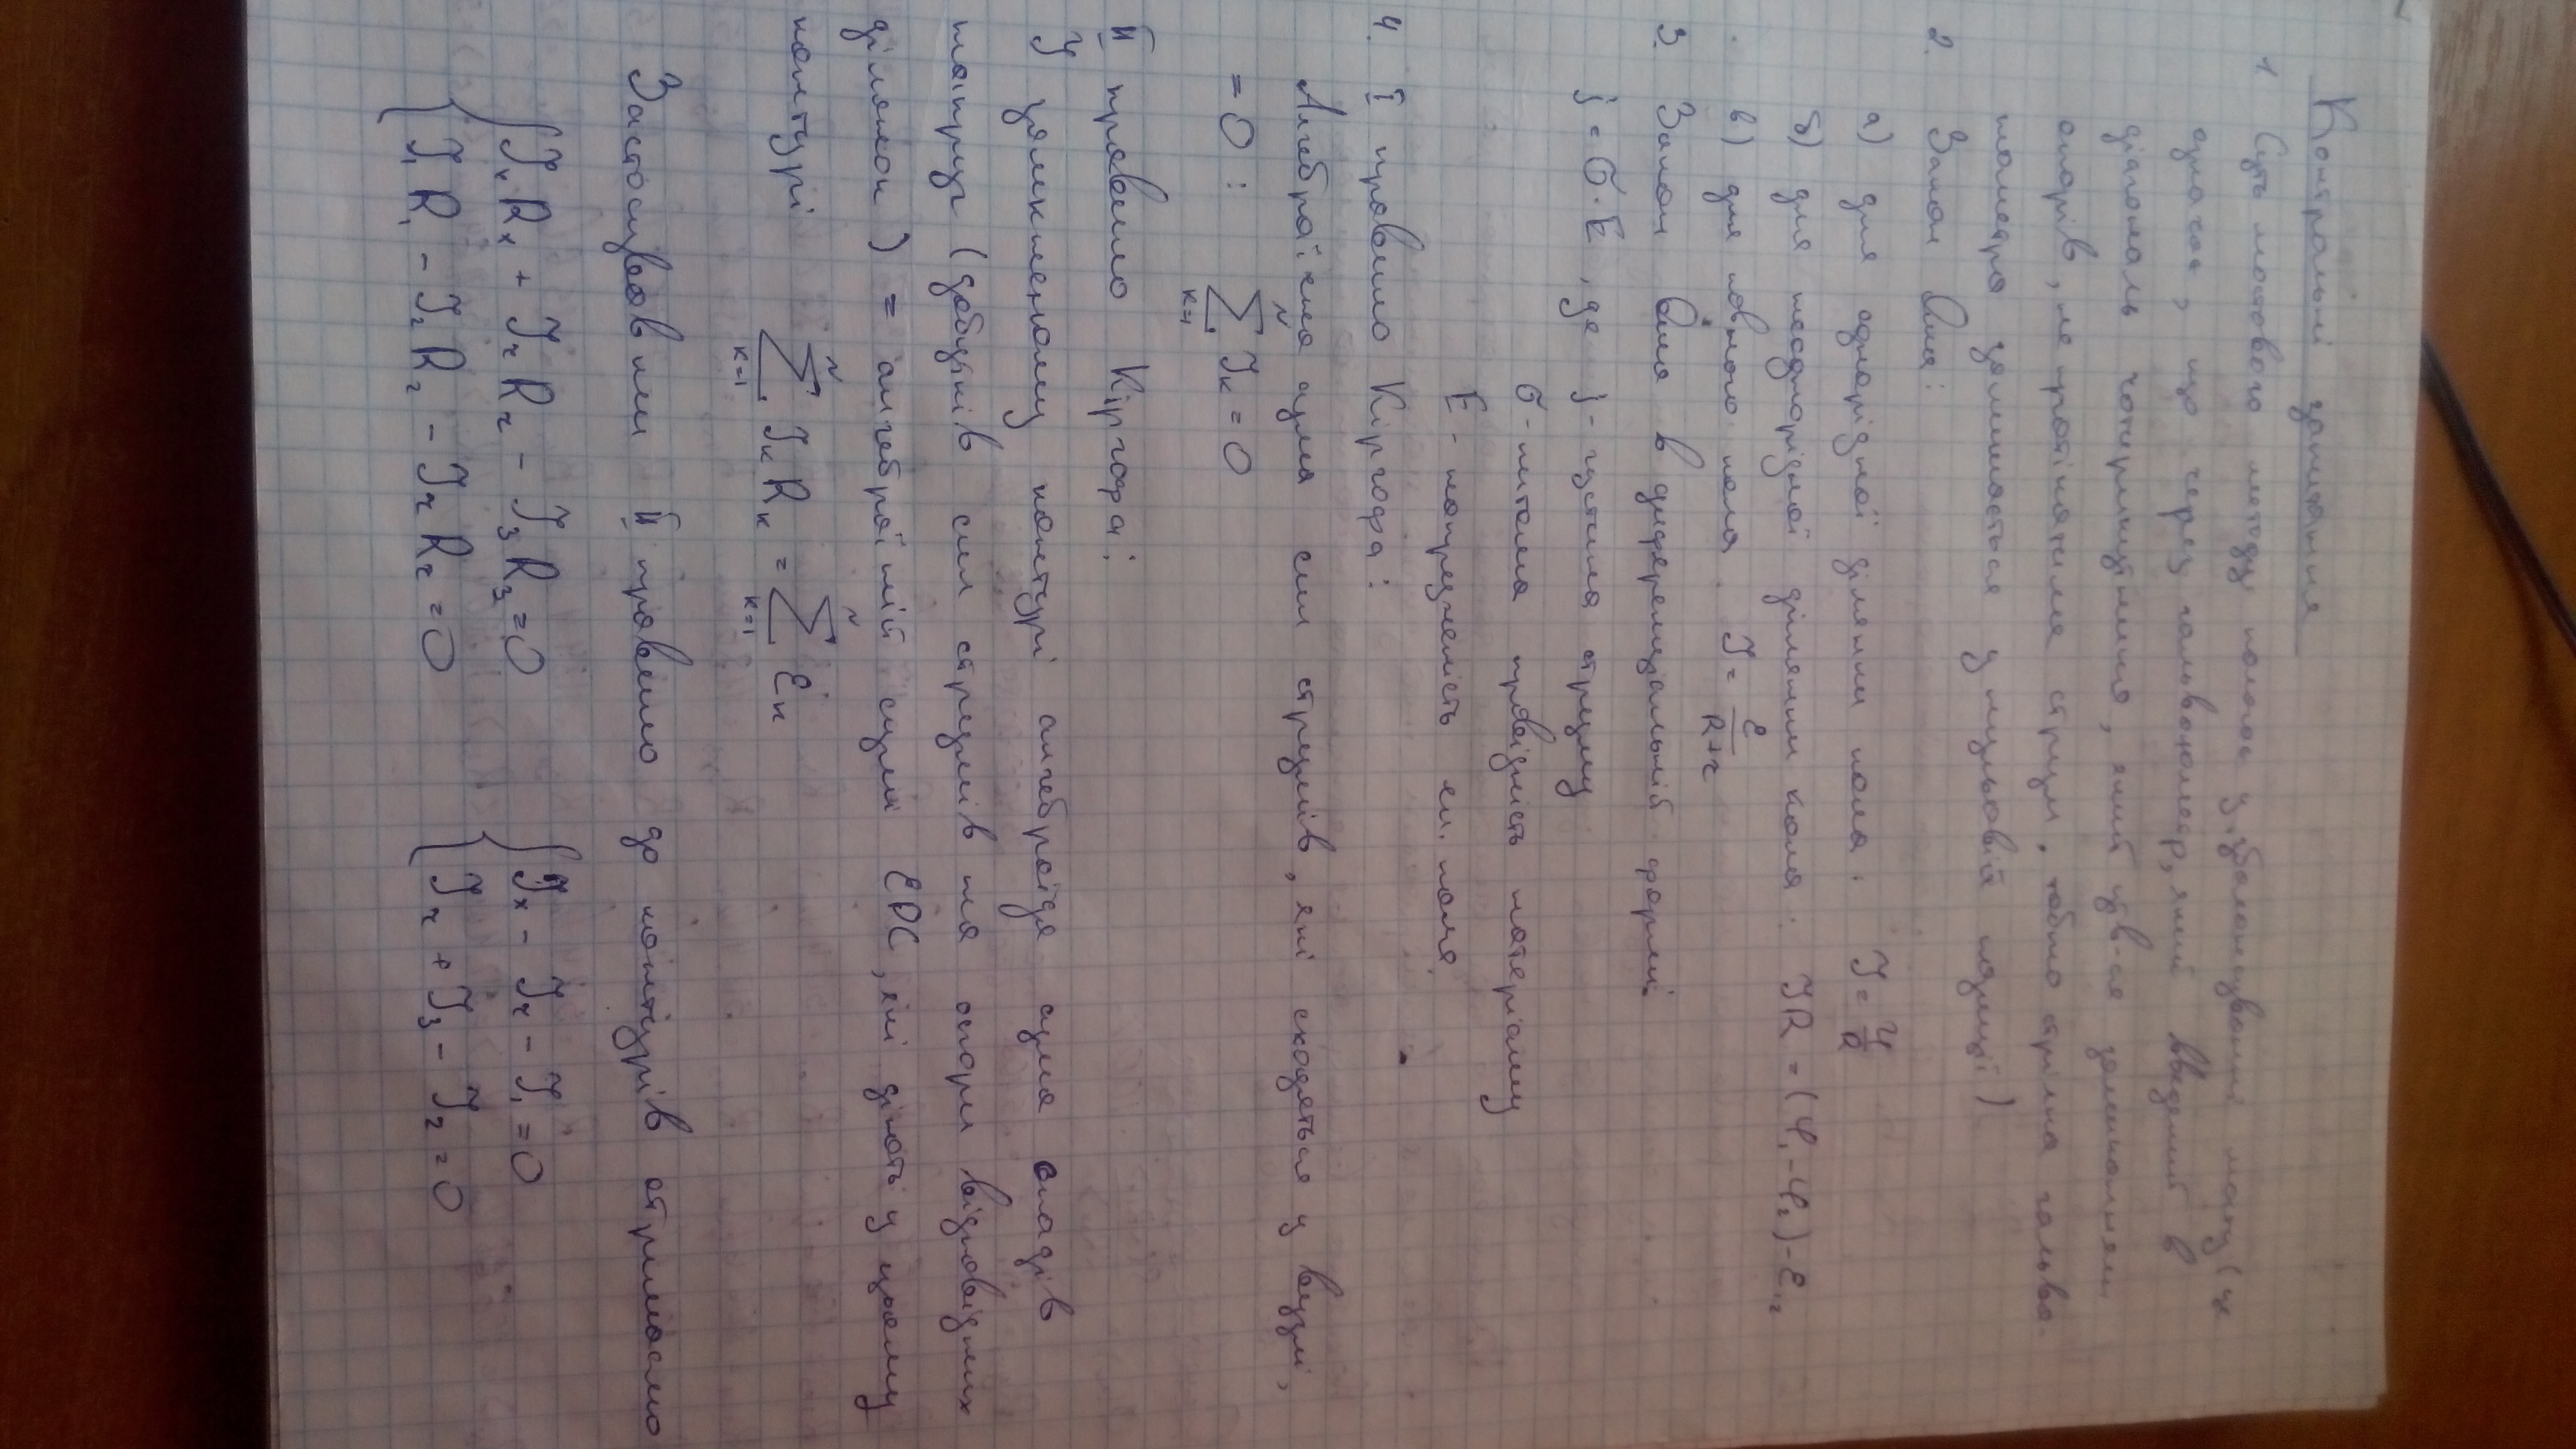 Контрольні запитання
1 Суть мостового методу полягає у збалансуванні мосту (це
означає, що через гальванометр, який введений в
діагональ чотирикутника, який утв-ся замкненням
опорів, не протікатиме струм, тобто стрілка гальва-
нометра залишається у нульовій позиції)
2. Закон Ома:
а) для однорідної ділянки кола: I = U/R
б) для неоднорідної ділянки кола: IR = (φ₁ - φ₂) - ε₁₂
в) для повного кола: I = ε/(R+r)
3. Закон Ома в диференціальній формі:
j = σ·E, де j - густина струму
σ - питома провідність матеріалу
E - напруженість ел. поля
4. I правило Кіргофа:
Алгебраїчна сума сил струмів, які сходяться у вузлі,
= 0: ∑ₖ₌₁ᴺ Iₖ = 0
II правило Кіргофа:
У замкненому контурі алгебраїчна сума спадів
напруг (добутків сил струмів на опори відповідних
ділянок) = алгебраїчній сумі ЕРС, які діють у цьому
контурі ∑ₖ₌₁ᴺ IₖRₖ = ∑ₖ₌₁ᴺ εₖ
Застосував ши II правило до контурів отримаємо
{ IₓRₓ + IᵣRᵣ - I₃R₃ = 0 { Iₓ - Iᵣ - I₁ = 0
I₁R₁ - I₂R₂ - IᵣRᵣ = 0 Iᵣ + I₃ - I₂ = 0